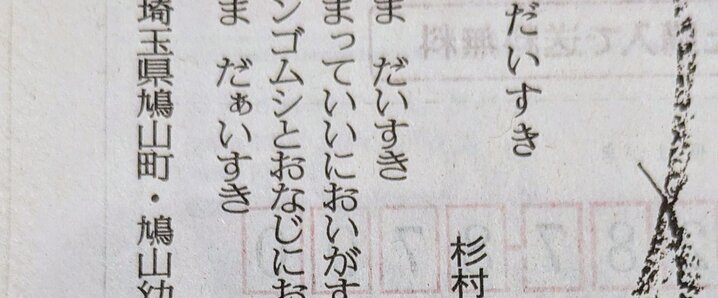 だいすき
杉村
ま だいすき
まっていいにおいがす
ンゴムシとおなじにお
ま だぁいすき
埼玉県鳩山町・鳩山幼